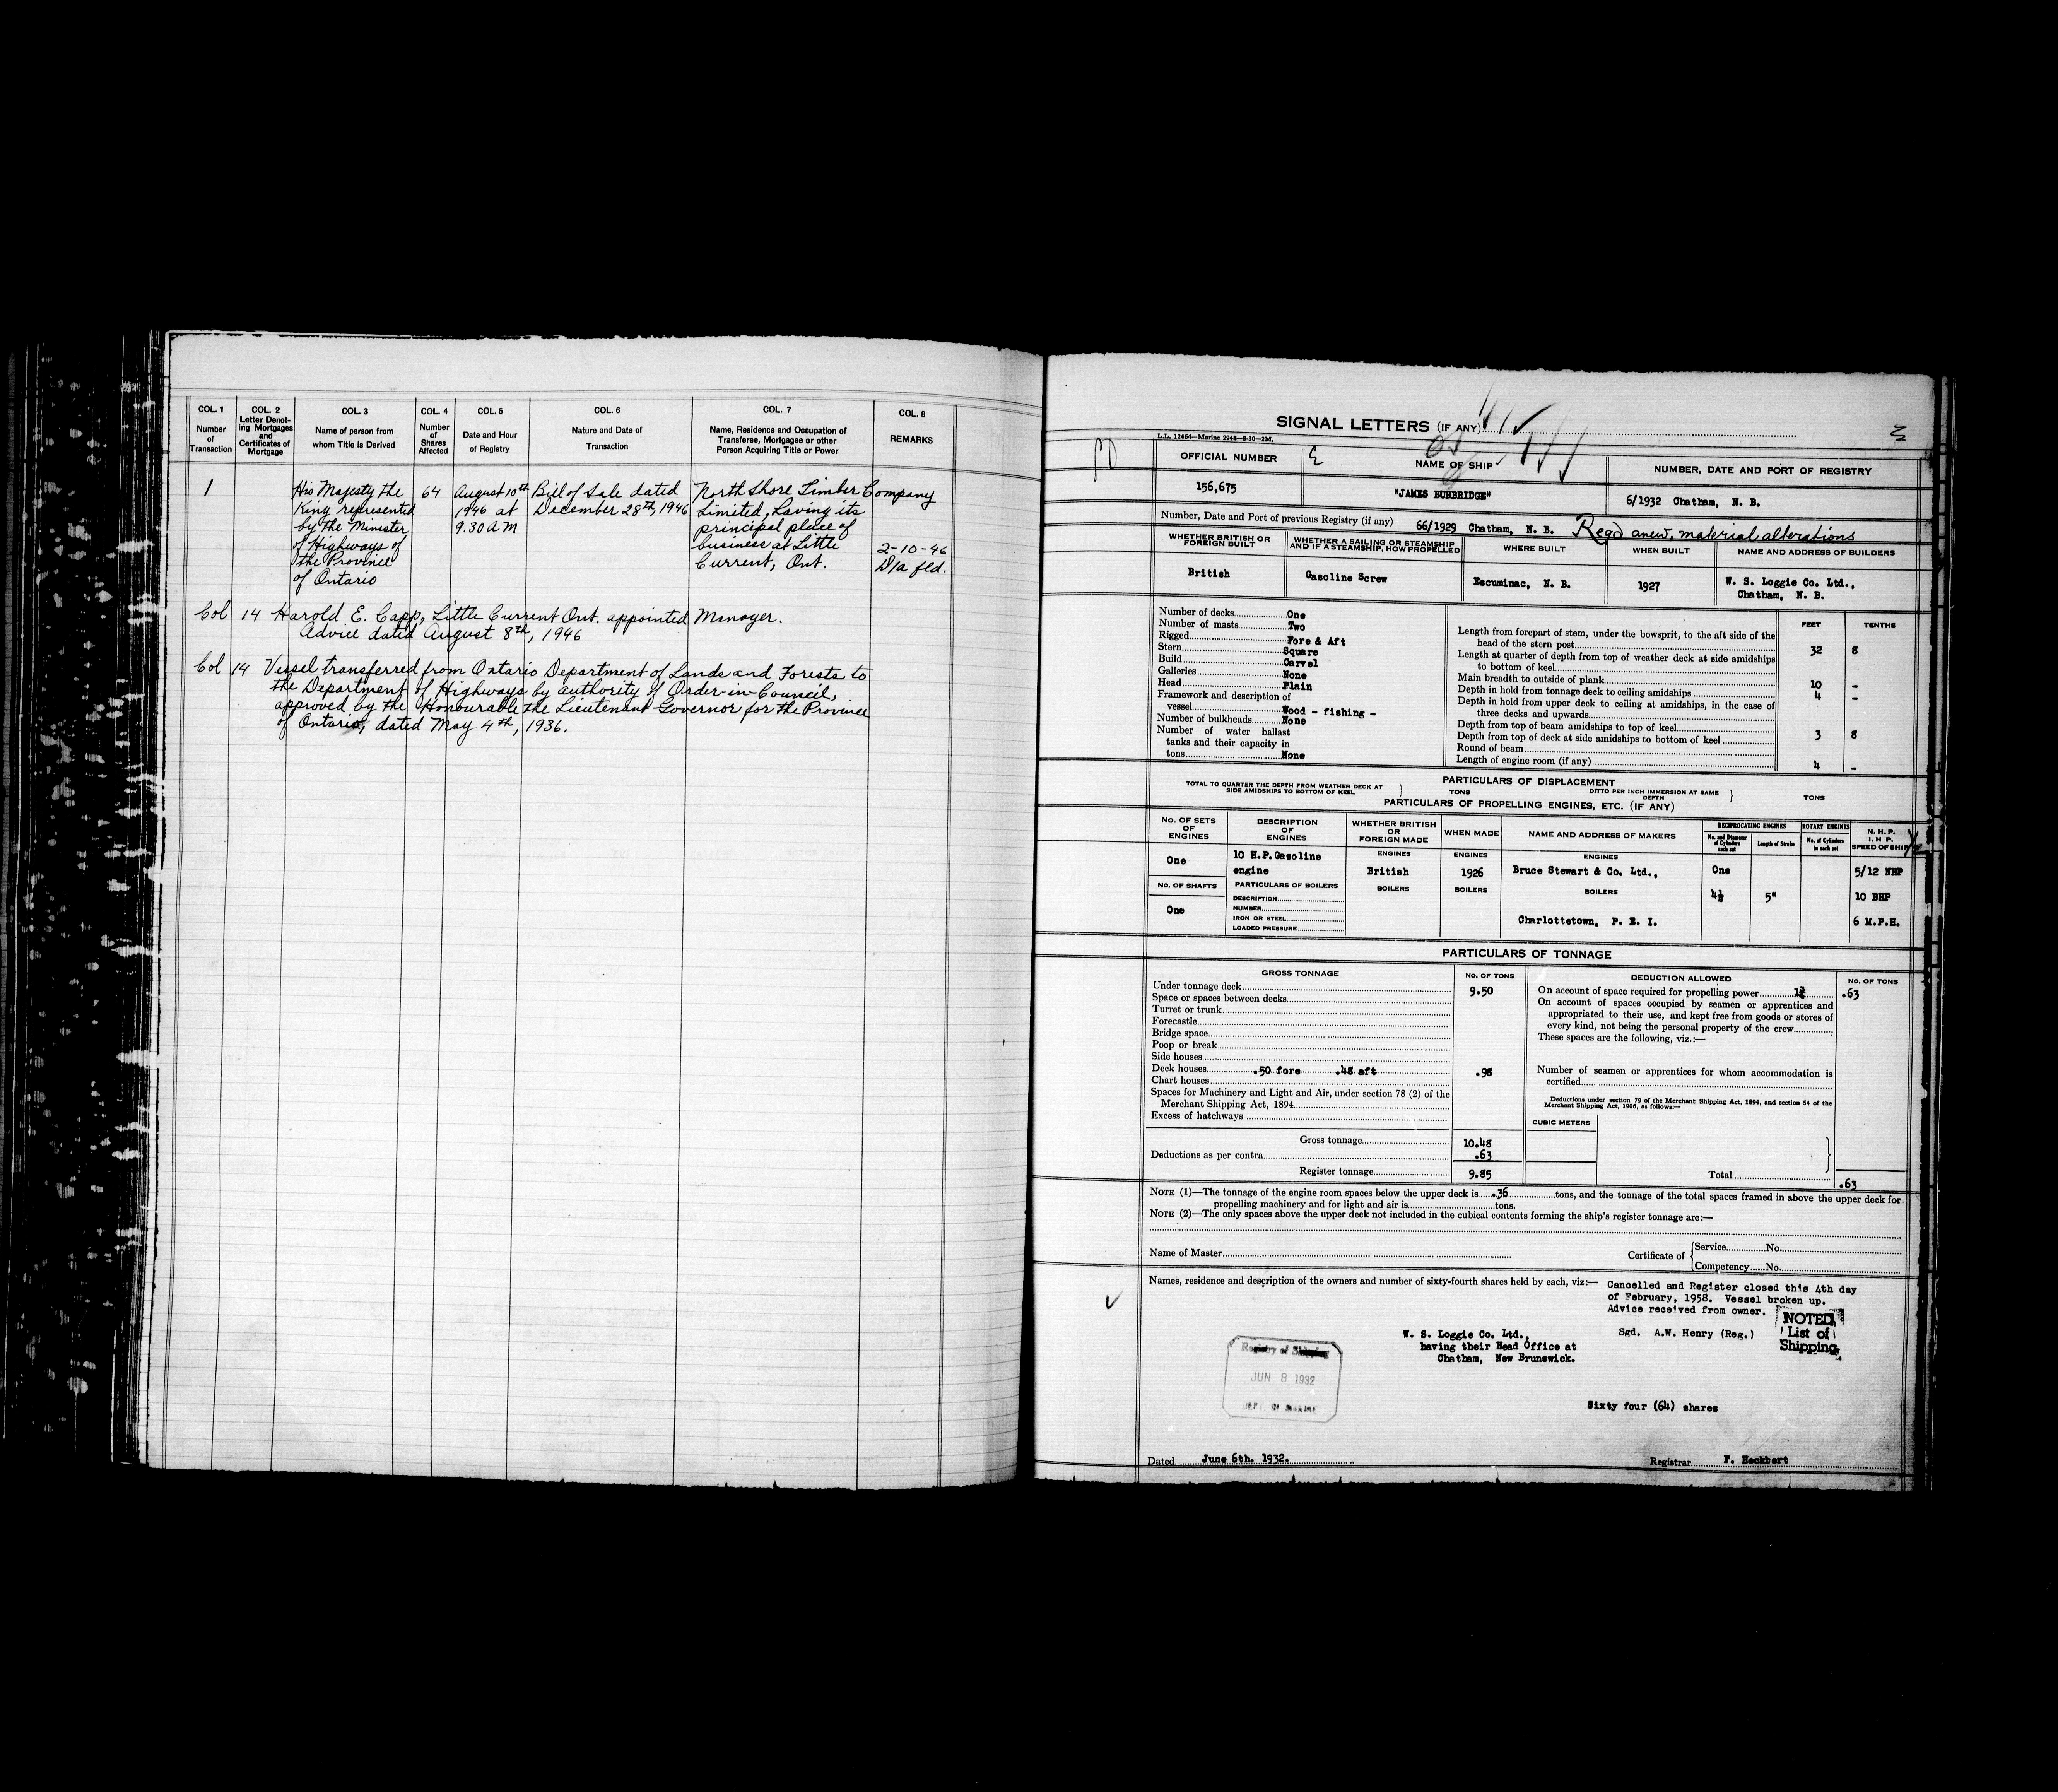 COL. 1
Number
of
Transaction
COL. 2
Letter Denot-
ing Mortgages
and
Certificates of
Mortgage
COL. 3
Name of person from
whom Title is Derived
COL. 4
Number
of
Shares
Affected
COL. 5
Date and Hour
of Registry
COL. 6
Nature and Date of
Transaction
COL. 7
Name, Residence and Occupation of
Transferee, Mortgagee or other
Person Acquiring Title or Power
COL. 8
REMARKS
1
His Majesty the
King represented
by the Minister
of Highways of
the Province
of Ontario
64
August 10th
1946 at
9.30 A M
Bill of Sale dated
December 28th, 1946
North Shore Timber Company
Limited, having its
principal place of
business at Little
Current, Ont.
2-10-46
D/a fld.
Col 14 Harold E. Capp, Little Current Ont. appointed Manager.
Advice dated August 8th, 1946
Col 14 Vessel transferred from Ontario Department of Lands and Forests to
the Department of Highways by authority of Order-in-Council,
approved by the Honourable the Lieutenant-Governor for the Province
of Ontario, dated May 4th, 1936.
SIGNAL LETTERS (IF ANY)
L.L. 12464—Marine 2948—8-30—2M.
OFFICIAL NUMBER
156,675
NAME OF SHIP
"JAMES BURBRIDGE"
NUMBER, DATE AND PORT OF REGISTRY
6/1932 Chatham, N. B.
Number, Date and Port of previous Registry (if any) 66/1929 Chatham, N. B. Regd anew, material alterations
WHETHER BRITISH OR
FOREIGN BUILT
WHETHER A SAILING OR STEAMSHIP
AND IF A STEAMSHIP, HOW PROPELLED
WHERE BUILT
WHEN BUILT
NAME AND ADDRESS OF BUILDERS
British
Gasoline Screw
Escuminac, N. B.
1927
W. S. Loggie Co. Ltd.,
Chatham, N. B.
Number of decks One
Number of masts Two
Rigged Fore & Aft
Stern Square
Build Carvel
Galleries None
Head Plain
Framework and description of
vessel Wood - fishing -
Number of bulkheads None
Number of water ballast
tanks and their capacity in
tons None
FEET TENTHS
Length from forepart of stem, under the bowsprit, to the aft side of the
head of the stern post 32 8
Length at quarter of depth from top of weather deck at side amidships
to bottom of keel
Main breadth to outside of plank 10 -
Depth in hold from tonnage deck to ceiling amidships 4 -
Depth in hold from upper deck to ceiling at amidships, in the case of
three decks and upwards
Depth from top of beam amidships to top of keel
Depth from top of deck at side amidships to bottom of keel 3 8
Round of beam
Length of engine room (if any) 4 -
PARTICULARS OF DISPLACEMENT
TOTAL TO QUARTER THE DEPTH FROM WEATHER DECK AT
SIDE AMIDSHIPS TO BOTTOM OF KEEL
TONS
DITTO PER INCH IMMERSION AT SAME
DEPTH
TONS
PARTICULARS OF PROPELLING ENGINES, ETC. (IF ANY)
No. OF SETS
OF
ENGINES
DESCRIPTION
OF
ENGINES
WHETHER BRITISH
OR
FOREIGN MADE
WHEN MADE
NAME AND ADDRESS OF MAKERS
RECIPROCATING ENGINES
No. and Diameter
of Cylinders
each set
Length of Stroke
ROTARY ENGINES
No. of Cylinders
in each set
N. H. P.
I. H. P.
SPEED OF SHIP
One
10 H.P.Gasoline
engine
ENGINES
British
ENGINES
1926
ENGINES
Bruce Stewart & Co. Ltd.,
One
5/12 NHP
No. OF SHAFTS
One
PARTICULARS OF BOILERS
DESCRIPTION
NUMBER
IRON OR STEEL
LOADED PRESSURE
BOILERS
BOILERS
BOILERS
Charlottetown, P. E. I.
4½
5"
10 BHP
6 M.P.H.
PARTICULARS OF TONNAGE
GROSS TONNAGE
No. OF TONS
Under tonnage deck 9.50
Space or spaces between decks
Turret or trunk
Forecastle
Bridge space
Poop or break
Side houses
Deck houses .50 fore .48 aft .98
Chart houses
Spaces for Machinery and Light and Air, under section 78 (2) of the
Merchant Shipping Act, 1894
Excess of hatchways
Gross tonnage 10.48
Deductions as per contra .63
Register tonnage 9.85
DEDUCTION ALLOWED
No. OF TONS
On account of space required for propelling power 1¾ .63
On account of spaces occupied by seamen or apprentices and
appropriated to their use, and kept free from goods or stores of
every kind, not being the personal property of the crew
These spaces are the following, viz.:—
Number of seamen or apprentices for whom accommodation is
certified
Deductions under section 79 of the Merchant Shipping Act, 1894, and section 54 of the
Merchant Shipping Act, 1906, as follows:—
CUBIC METERS
Total .63
NOTE (1)—The tonnage of the engine room spaces below the upper deck is .36 tons, and the tonnage of the total spaces framed in above the upper deck for
propelling machinery and for light and air is tons.
NOTE (2)—The only spaces above the upper deck not included in the cubical contents forming the ship's register tonnage are:—
Name of Master
Certificate of
Service No.
Competency No.
Names, residence and description of the owners and number of sixty-fourth shares held by each, viz:—
Cancelled and Register closed this 4th day
of February, 1958. Vessel broken up.
Advice received from owner.
Sgd. A.W. Henry (Reg.)
NOTED
List of
Shipping
W. S. Loggie Co. Ltd.,
having their Head Office at
Chatham, New Brunswick.
Registry of Shipping
JUN 8 1932
DEPT. OF MARINE
Sixty four (64) shares
Dated June 6th. 1932.
Registrar F. Heckbert